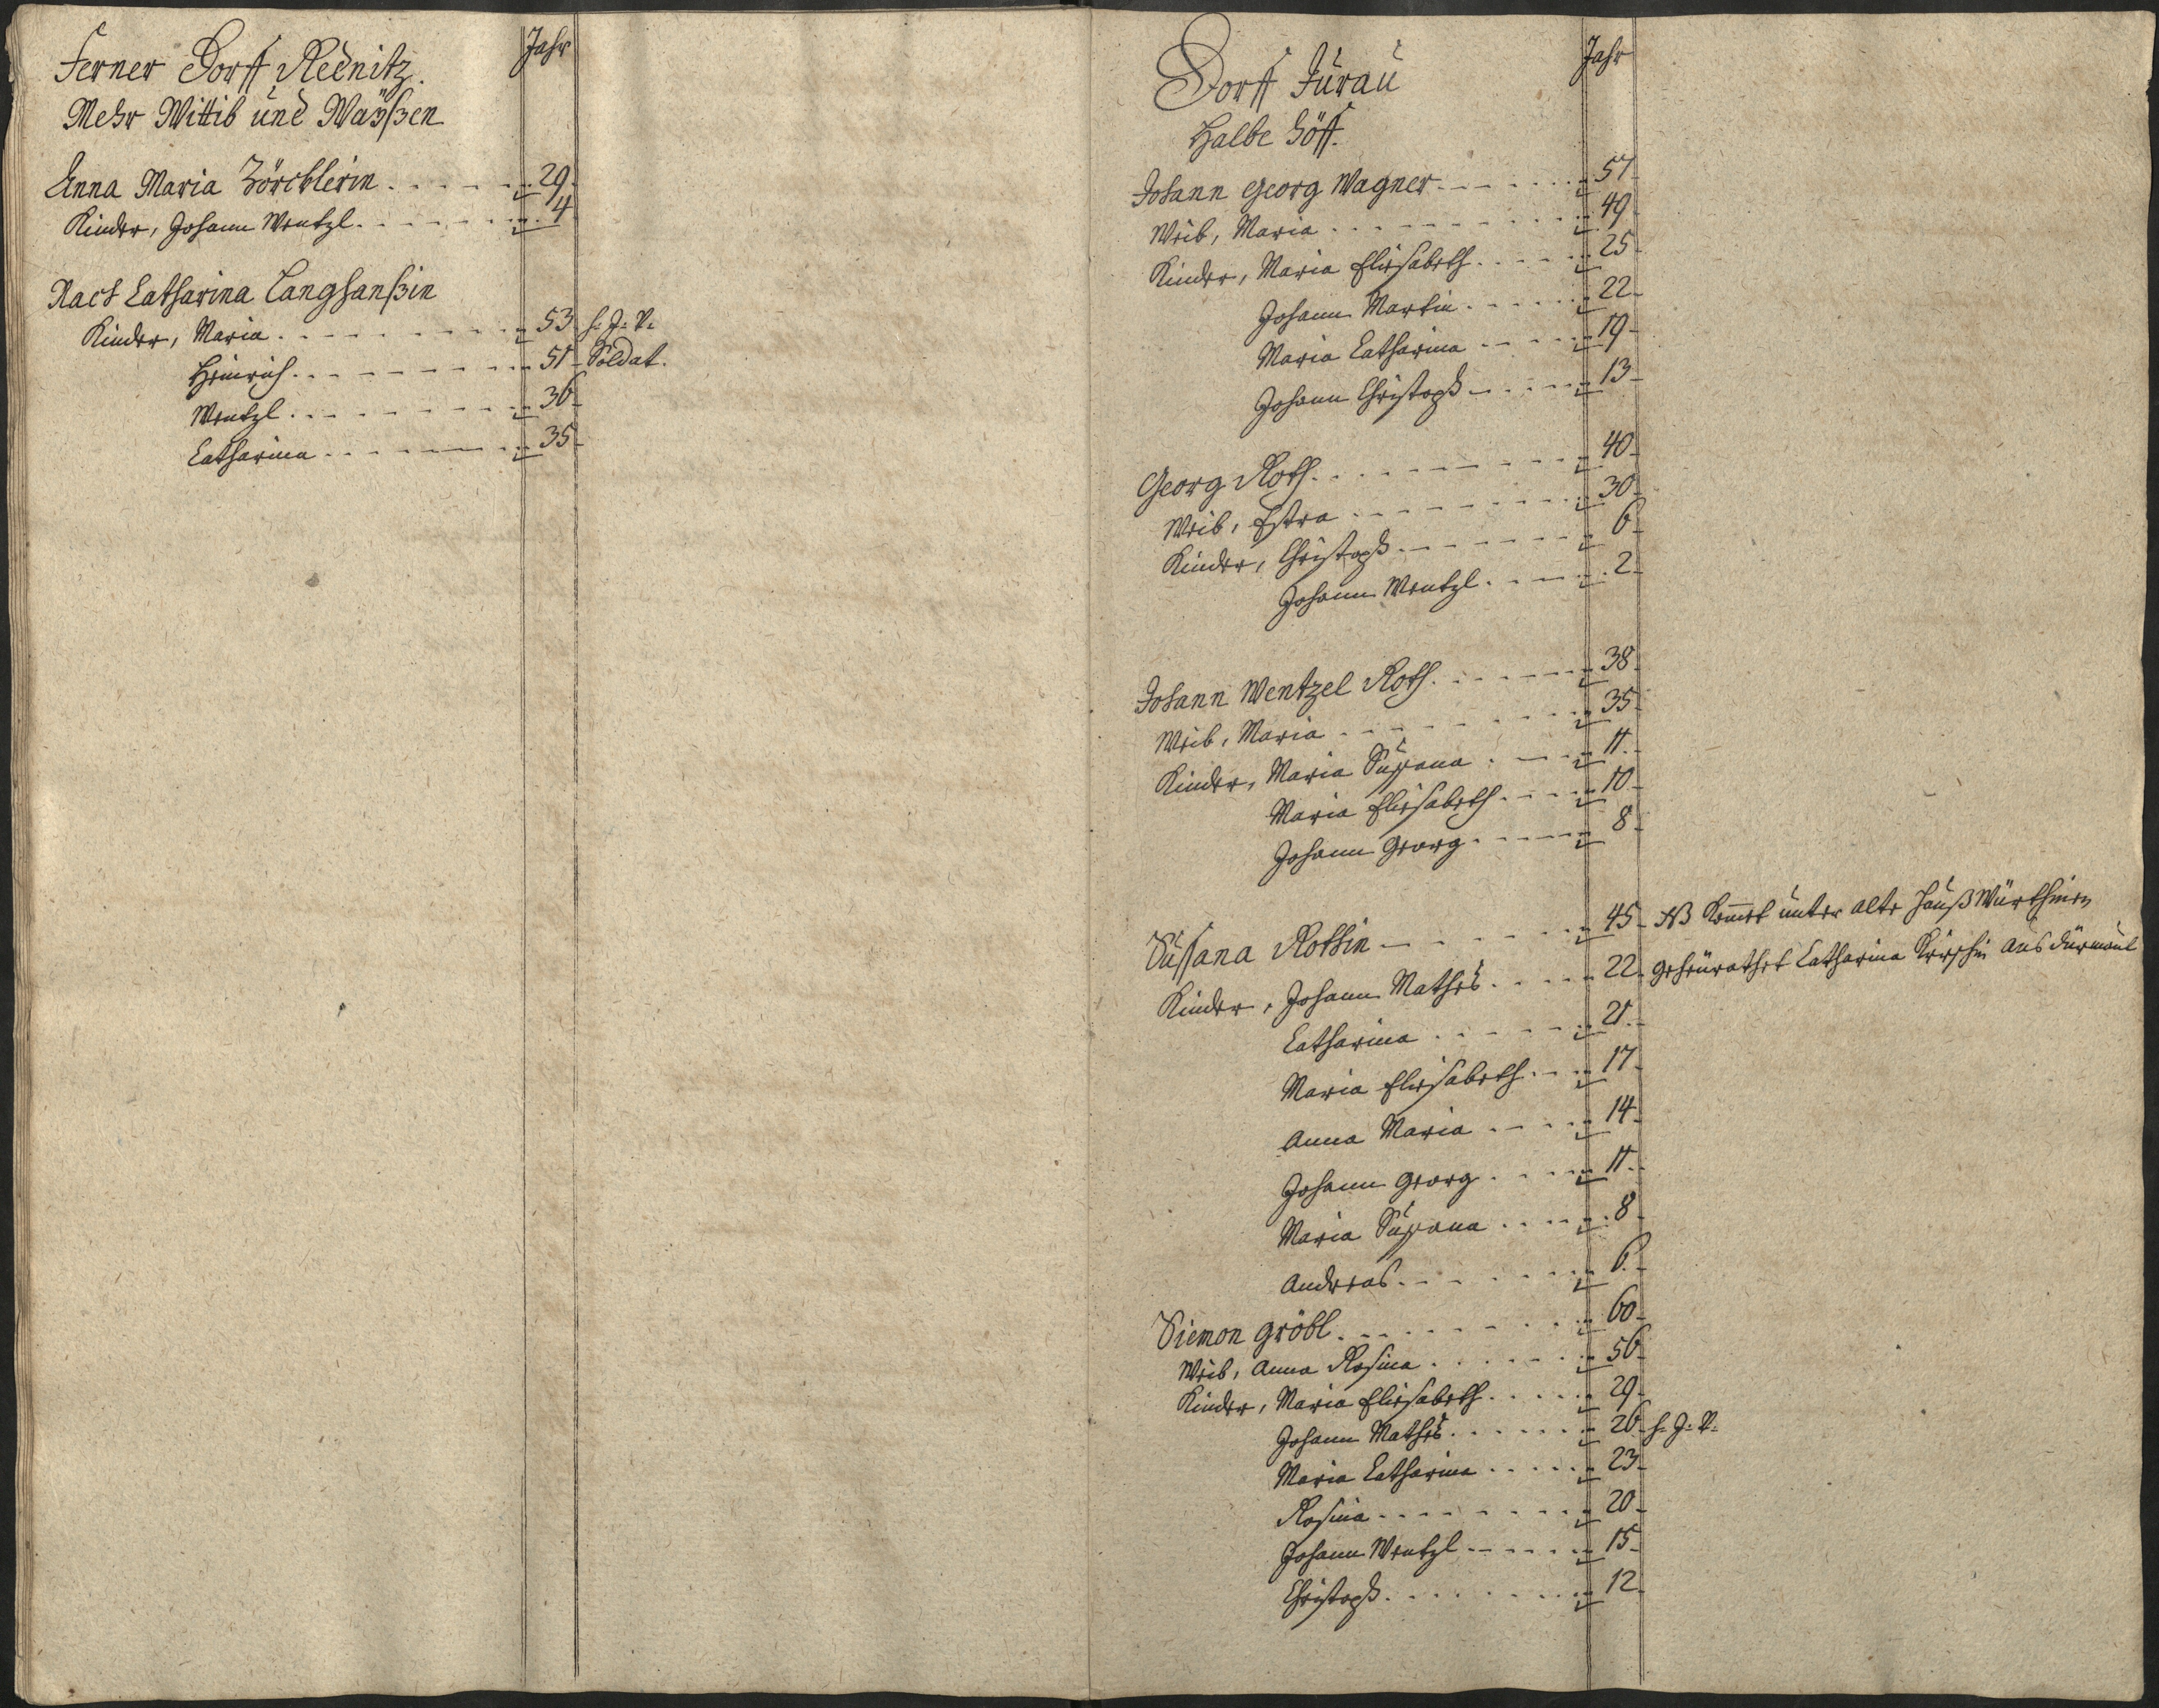 Jahr
Ferner Dorff Rednitz.
Mehr Wittib und Waÿßen
Anna Maria Zörcklerin 29
Kinder, Johann Wentzl 4
Nach Catharina Langhanßin
Kinder, Maria 53 h. J. V.
Heinrich 51 Soldat.
Wentzl 36
Catharina 35
Jahr
Dorff Jurau
Halbe Höff.
Johann Georg Wagner 57
Weib, Maria 49
Kinder, Maria Eliesabeth 25
Johann Martin 22
Maria Catharina 19
Johann Christoph 13
Georg Roth 40
Weib, Estra 30
Kinder, Christoph 6
Johann Wentzl 2
Johann Wentzel Roth 38
Weib, Maria 35
Kinder, Maria Sussana 11
Maria Eliesabeth 10
Johann Georg 8
Sussana Rothin 45 NB komet unter alte Hauß Würthinen
Kinder, Johann Mathes 22 geheürathet Catharina aus Dürmaul
Catharina 21
Maria Eliesabeth 17
Anna Maria 14
Johann Georg 11
Maria Sussana 8
Andreas 6
Siemon Gröbl 60
Weib, Anna Rosina 56
Kinder, Maria Eliesabeth 29
Johann Mathes 26 h. J. V.
Maria Catharina 23
Rosina 20
Johann Wentzl 15
Christoph 12